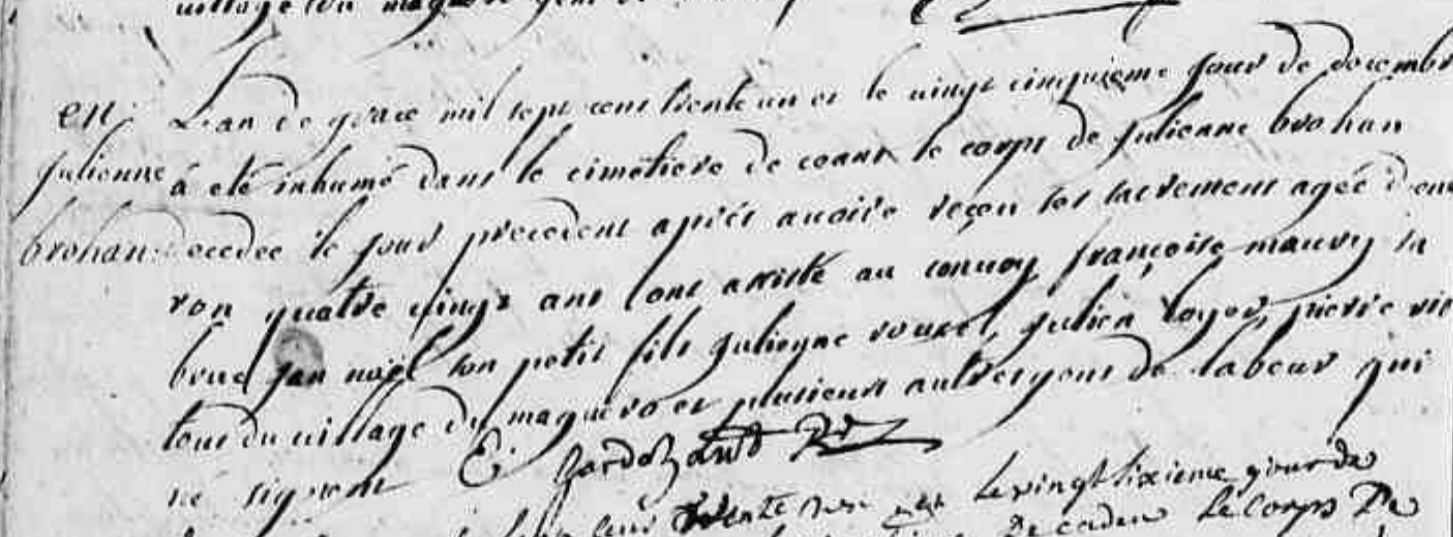 village du
en L'an de grace mil sept cent trente un et le vingt cinquieme jour de decembr
julienne a eté inhumé dans le cimetiere de le corps de julienne brohan
brohan decedee le jour precedent aprés avoire reçeu les sacrement agée d'en
ron quatre vingt ans ont assisté au convoy françoise maury sa
brue jan noel son petit fils julienne rouxel, julien loyer, pierre
tous du village du maguero et plusieurs autres gens de labeur qui
né signent
cent trente le vingt sixieme jour de
De caden Le corps De